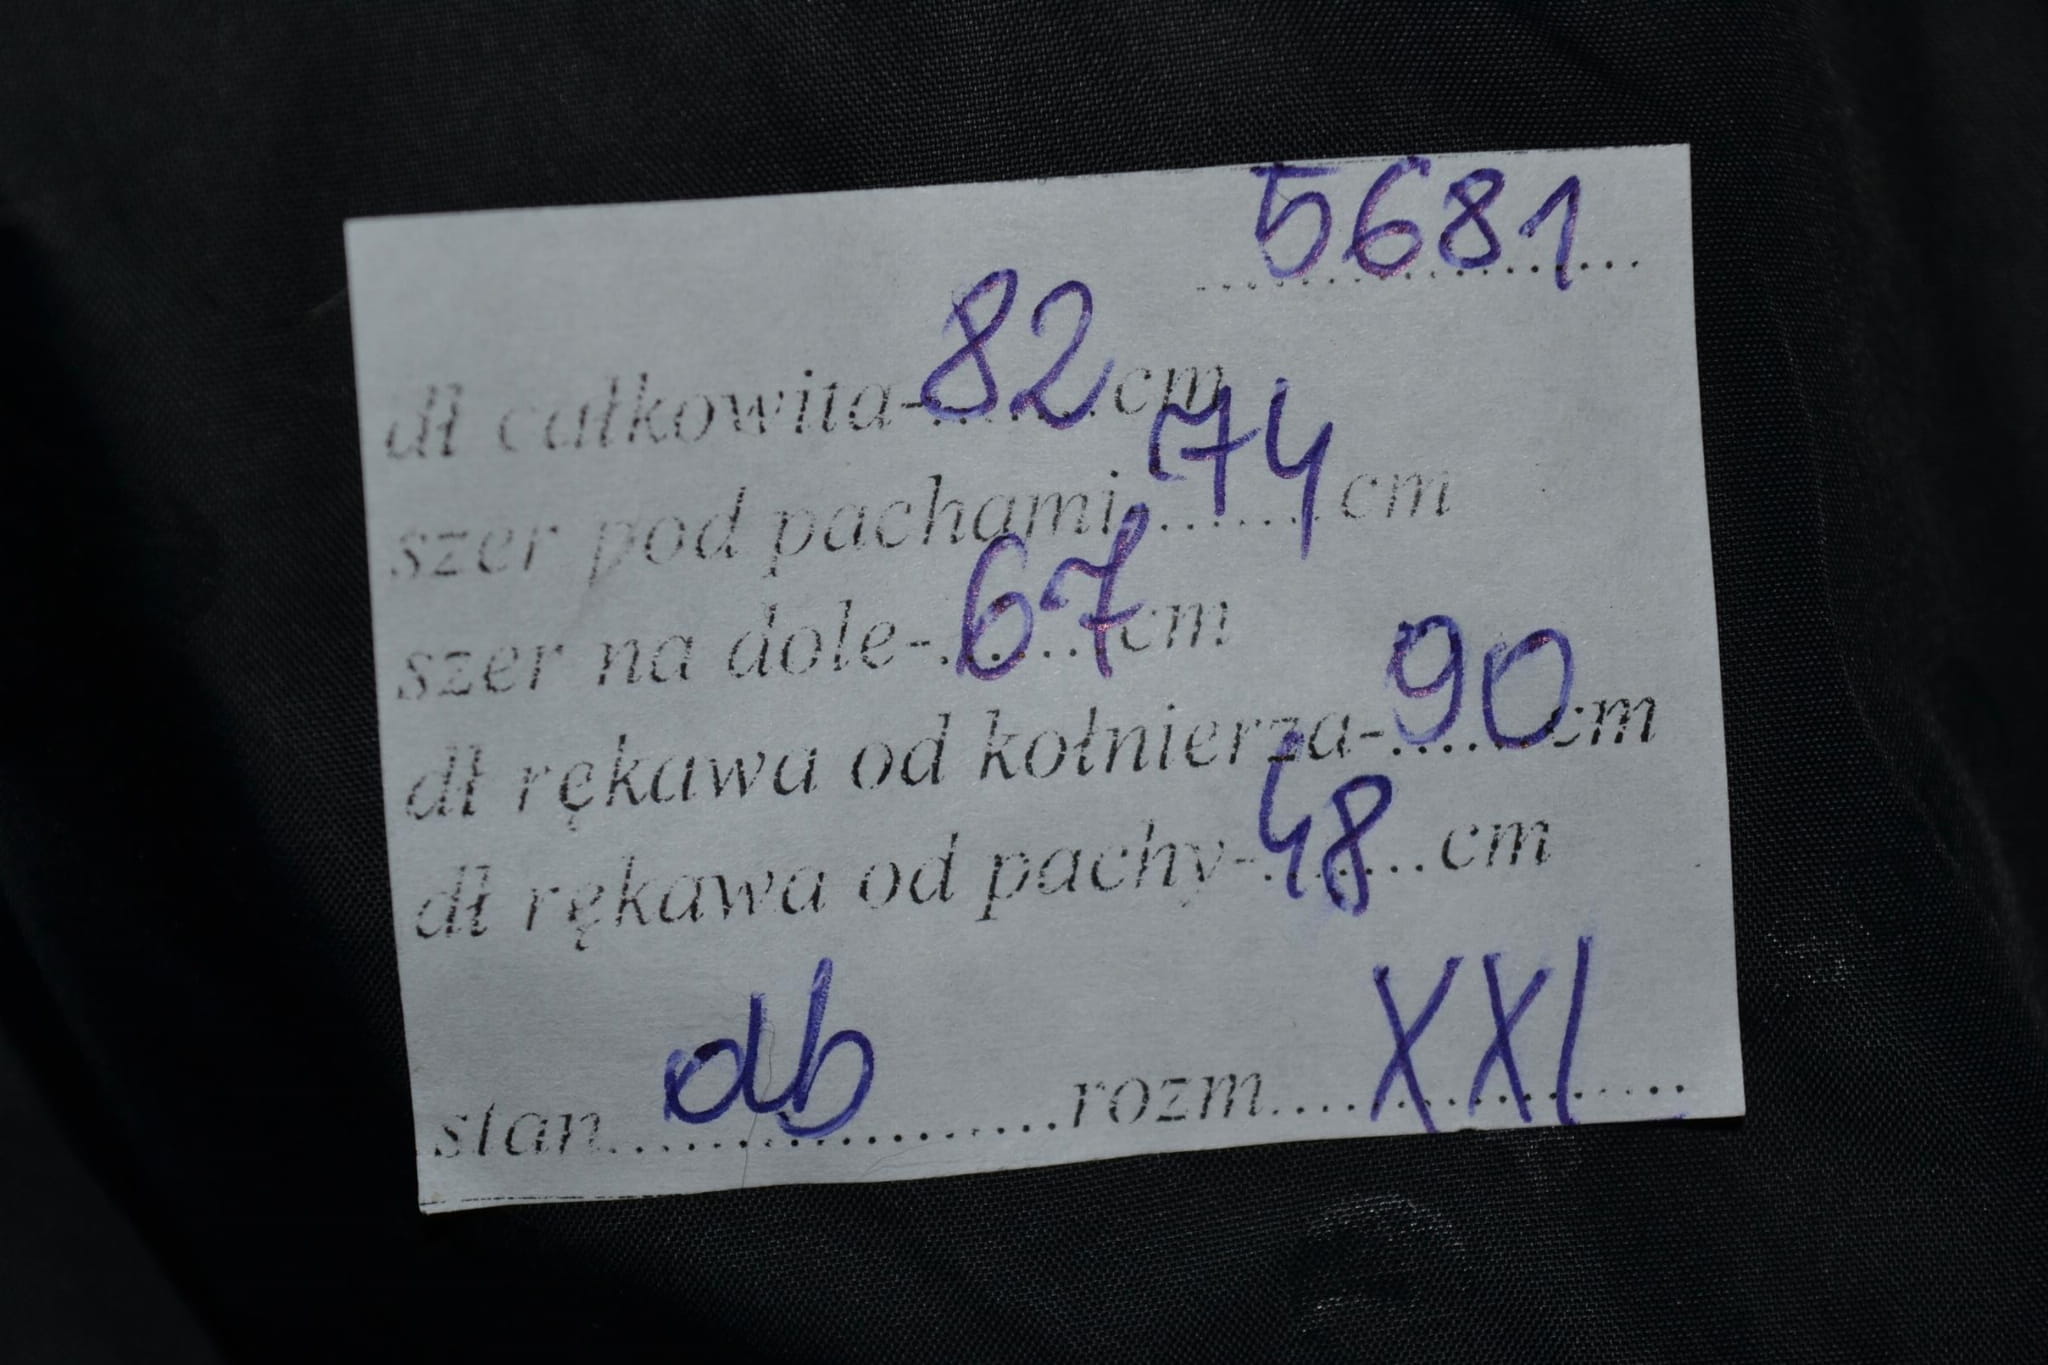 5681
dł całkowita-82cm
szer pod pachami-74cm
szer na dole-67cm
dł rękawa od kołnierza-90cm
dł rękawa od pachy-48cm
stan db rozm XXL